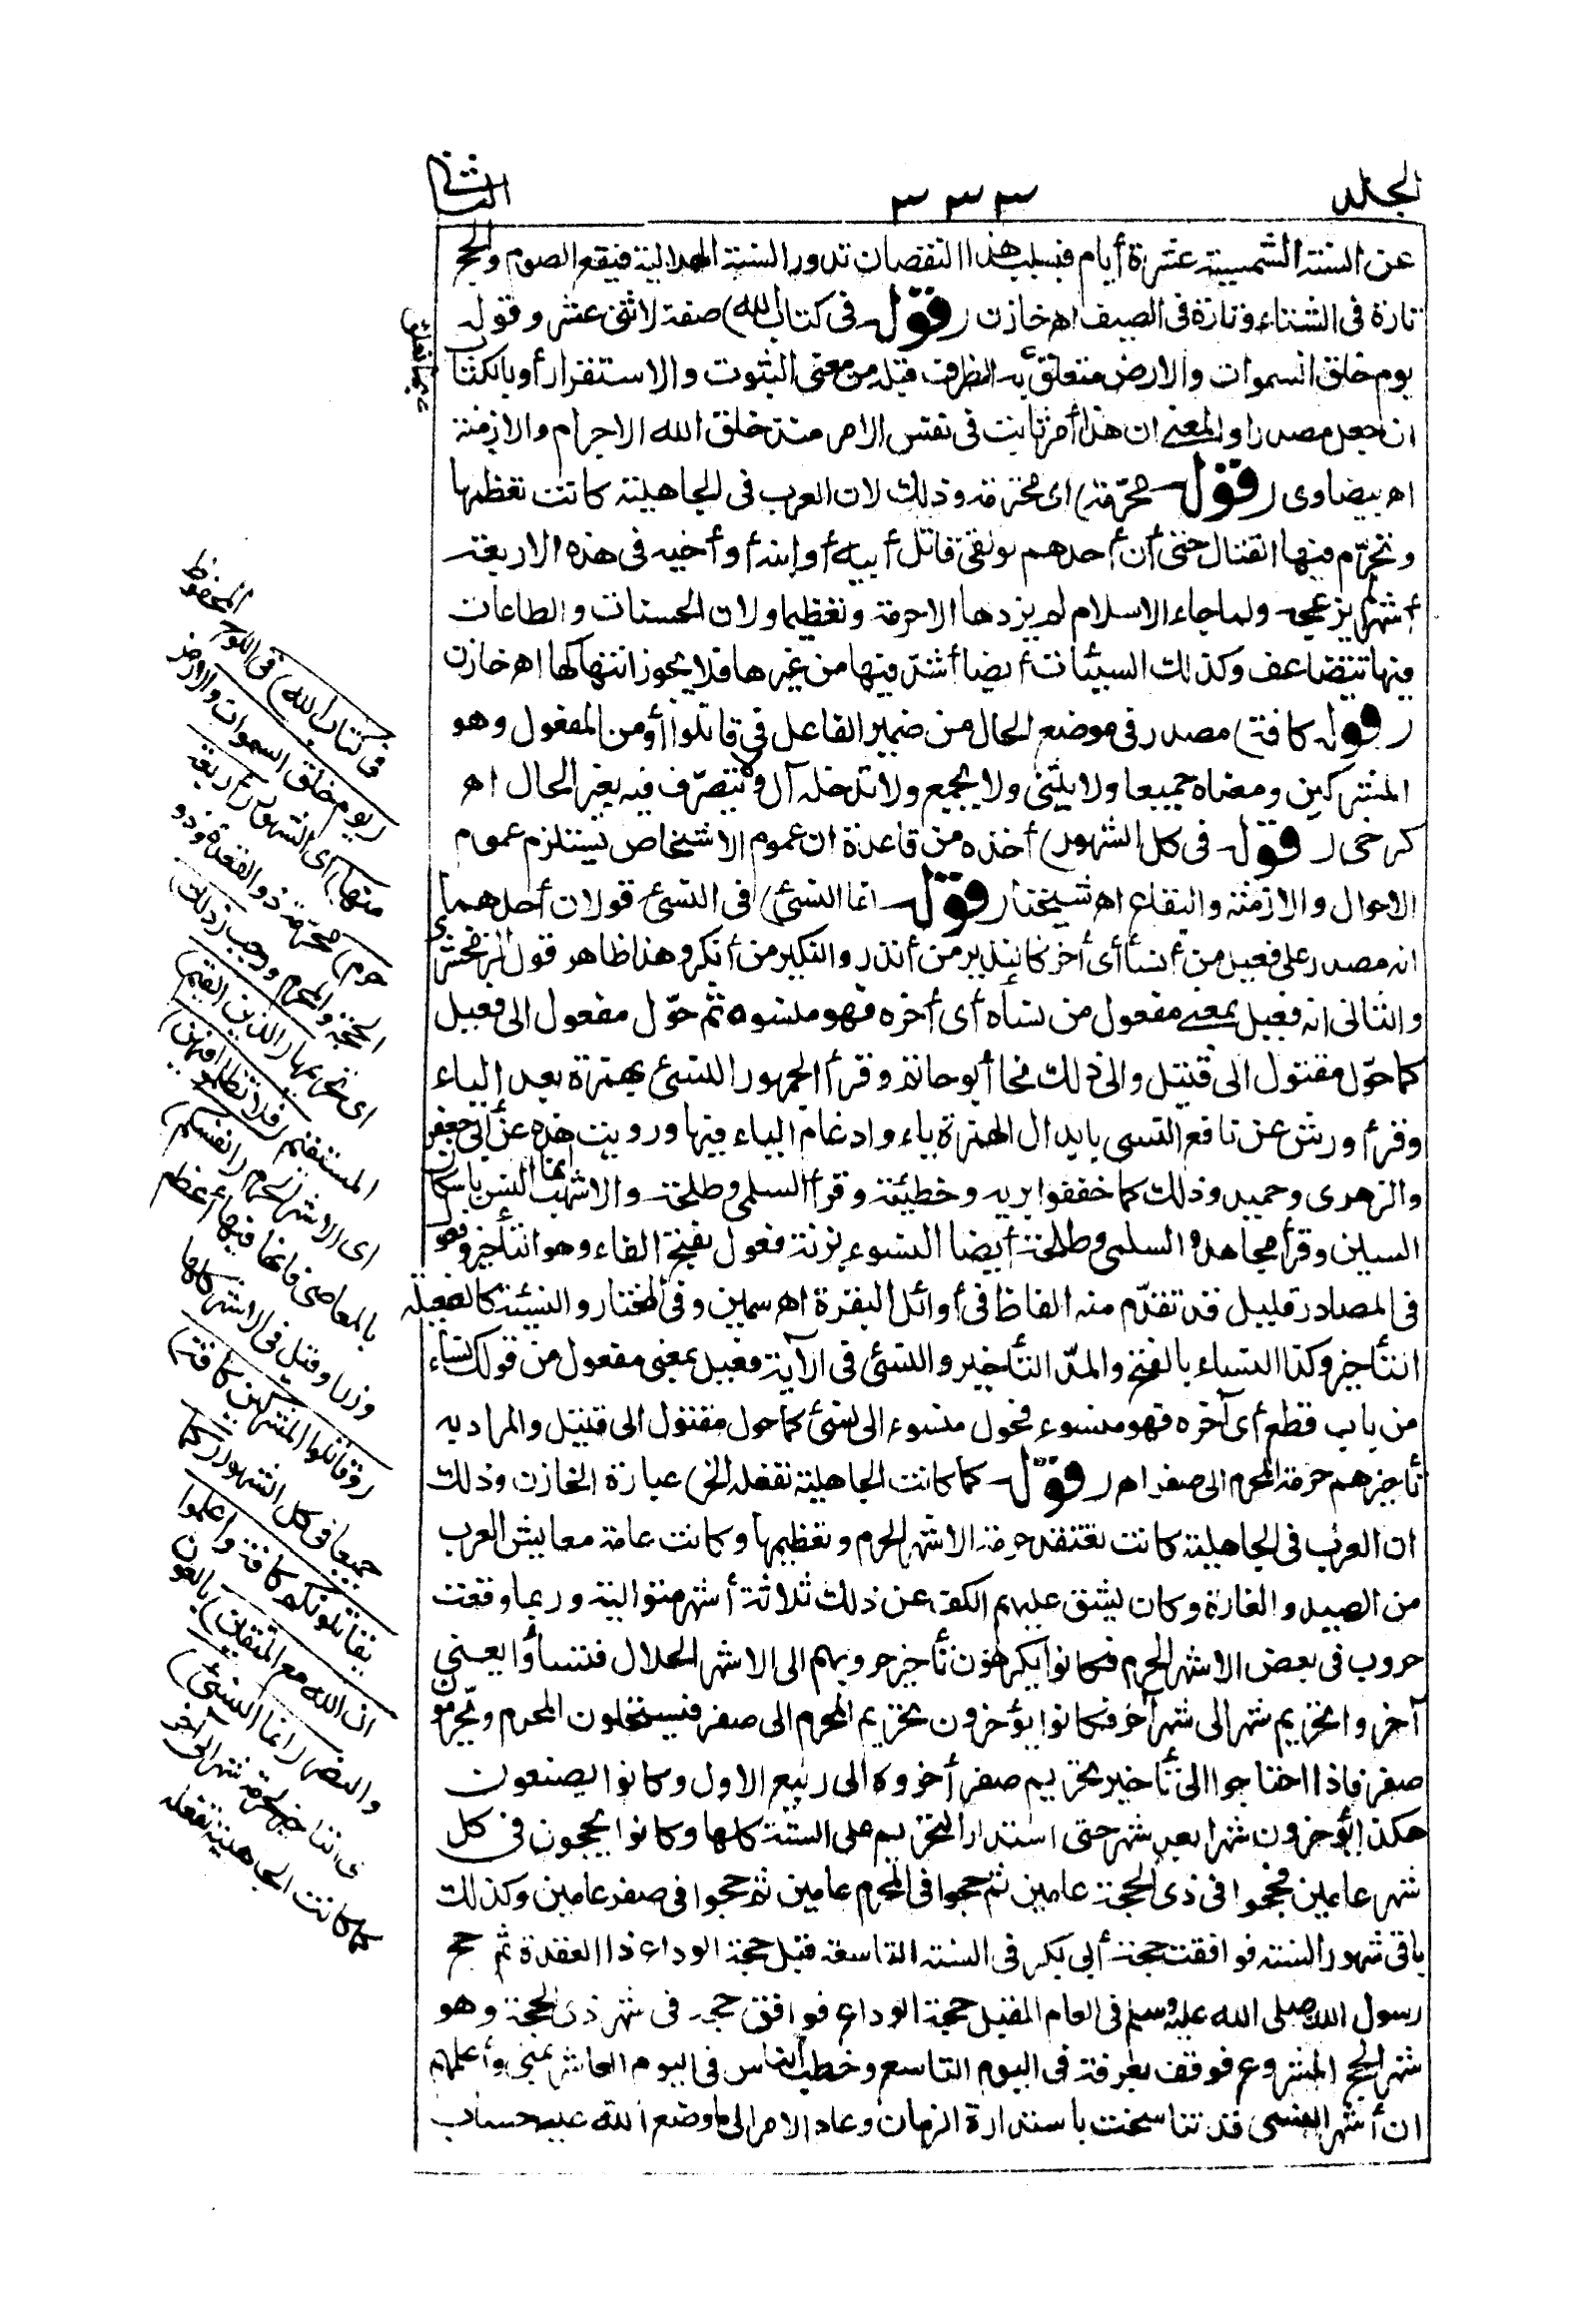 الجلد
٣٣٣
الثانى
عن السنة الشمسية عشرة أيام فبسبب هذا النقصان تدور السنة الهلالية فيقع الصوم والحج
تارة فى الشتاء وتارة فى الصيف اه خازن (قوله فى كتاب الله) صفة لاثنى عشر وقوله
يوم خلق السموات والارض متعلق بما تعلق به الظرف قبله من معنى الثبوت والاستقرار أو بالكتاب
ان جعل مصدرا والمعنى ان هذا أمر ثابت فى نفس الامر منذ خلق الله الاجرام والازمنة
اه بيضاوى (قوله محرّمة) اى محترمة وذلك لان العرب فى الجاهلية كانت تعظمها
وتحرّم فيها القتال حتى أن أحدهم لو لقى قاتل أبيه أو ابنه أو أخيه فى هذه الاربعة
أشهر لم يزعجه ولما جاء الاسلام لم يزدها الا حرمة وتعظيما ولان الحسنات والطاعات
فيها تتضاعف وكذلك السيئات أيضا أشدّ فيها من غيرها فلا يجوز انتهاكها اه خازن
(قوله كافة) مصدر فى موضع الحال من ضمير الفاعل فى قاتلوا أو من المفعول وهو
المشركين ومعناه جميعا ولا يثنى ولا يجمع ولا تدخله آل ولا يتصرّف فيه بغير الحال اه
كرخى (قوله فى كل الشهور) أخذه من قاعدة ان عموم الاشخاص يستلزم عموم
الاحوال والازمنة والبقاع اه شيخنا (قوله انما النسئ) فى النسئ قولان أحدهما
انه مصدر على فعيل من أنسأ أى أخر كالنذير من أنذر والنكير من أنكر وهذا ظاهر قول الزمخشرى
والثانى انه فعيل بمعنى مفعول من نسأه أى أخره فهو منسوء ثم حوّل مفعول الى فعيل
كما حوّل مقتول الى قتيل والى ذلك نحا أبو حاتم وقرأ الجمهور النسئ بهمزة بعد الياء
وقرأ ورش عن نافع النسى بابدال الهمزة ياء وادغام الياء فيها ورويت هذه عن أبى جعفر
والزهرى وحميد وذلك كما خففوا برية وخطيئة وقرأ السلمى وطلحة والاشهب النسئ باسكان
السين وقرأ مجاهد والسلمى وطلحة أيضا النسوء بزنة فعول بفتح الفاء وهو التأخير وفعول
فى المصادر قليل قد تقدّم منه الفاظ فى أوائل البقرة اه سمين وفى المختار والنسيئة كالفعيلة
التأخير وكذا النساء بالفتح والمدّ التأخير والنسئ فى الآية فعيل بمعنى مفعول من قولك نساء
من باب قطع أى أخره فهو منسوء فحول منسوء الى نسئ كما حول مقتول الى قتيل والمراد به
تأخيرهم حرمة المحرم الى صفر اه (قوله كما كانت الجاهلية تفعله الخ) عبارة الخازن وذلك
ان العرب فى الجاهلية كانت تعتقد حرمة الاشهر الحرم وتعظيمها وكانت عامة معايش العرب
من الصيد والغارة وكان يشق عليهم الكف عن ذلك ثلاثة أشهر متوالية وربما وقعت
حروب فى بعض الاشهر الحرم فكانوا يكرهون تأخير حروبهم الى الاشهر الحلال فنسأوا يعنى
أخروا تحريم شهر الى شهر آخر فكانوا يؤخرون تحريم المحرم الى صفر فيستحلون المحرم ويحرمون
صفر فاذا احتاجوا الى تأخير تحريم صفر أخروه الى ربيع الاول وكانوا يصنعون
هكذا يؤخرون شهرا بعد شهر حتى استدار التحريم على السنة كلها وكانوا يحجون فى كل
شهر عامين فحجوا فى ذى الحجة عامين ثم حجوا فى المحرم عامين ثم حجوا فى صفر عامين وكذلك
باقى شهور السنة فوافقت حجة أبى بكر فى السنة التاسعة قبل حجة الوداع ذا القعدة ثم حج
رسول الله صلى الله عليه وسلم فى العام المقبل حجة الوداع فوافق حجه فى شهر ذى الحجة وهو
شهر الحج المشروع فوقف بعرفة فى اليوم التاسع وخطب الناس فى اليوم العاشر بمنى وأعلمهم
ان أشهر النسى قد تناسخت باستدارة الزمان وعاد الامر الى ما وضع الله عليه حساب
فى كتاب الله) فى اللوح المحفوظ
(يوم خلق السموات والارض
منها) اى الشهور (أربعة
حرم) محرّمة ذو القعدة وذو
الحجة والمحرم ورجب (ذلك)
اى تحريمها (الدين القيم)
المستقيم (فلا تظلموا فيهن)
اى الاشهر الحرم (أنفسكم)
بالمعاصى فانها فيها أعظم
وزرا وقيل فى الاشهر كلها
(وقاتلوا المشركين كافة)
جميعا فى كل الشهور (كما
يقاتلونكم كافة واعلموا
ان الله مع المتقين) بالعون
والنصر (انما النسئ)
اى التأخير لحرمة شهر الى آخر
كما كانت الجاهلية تفعله